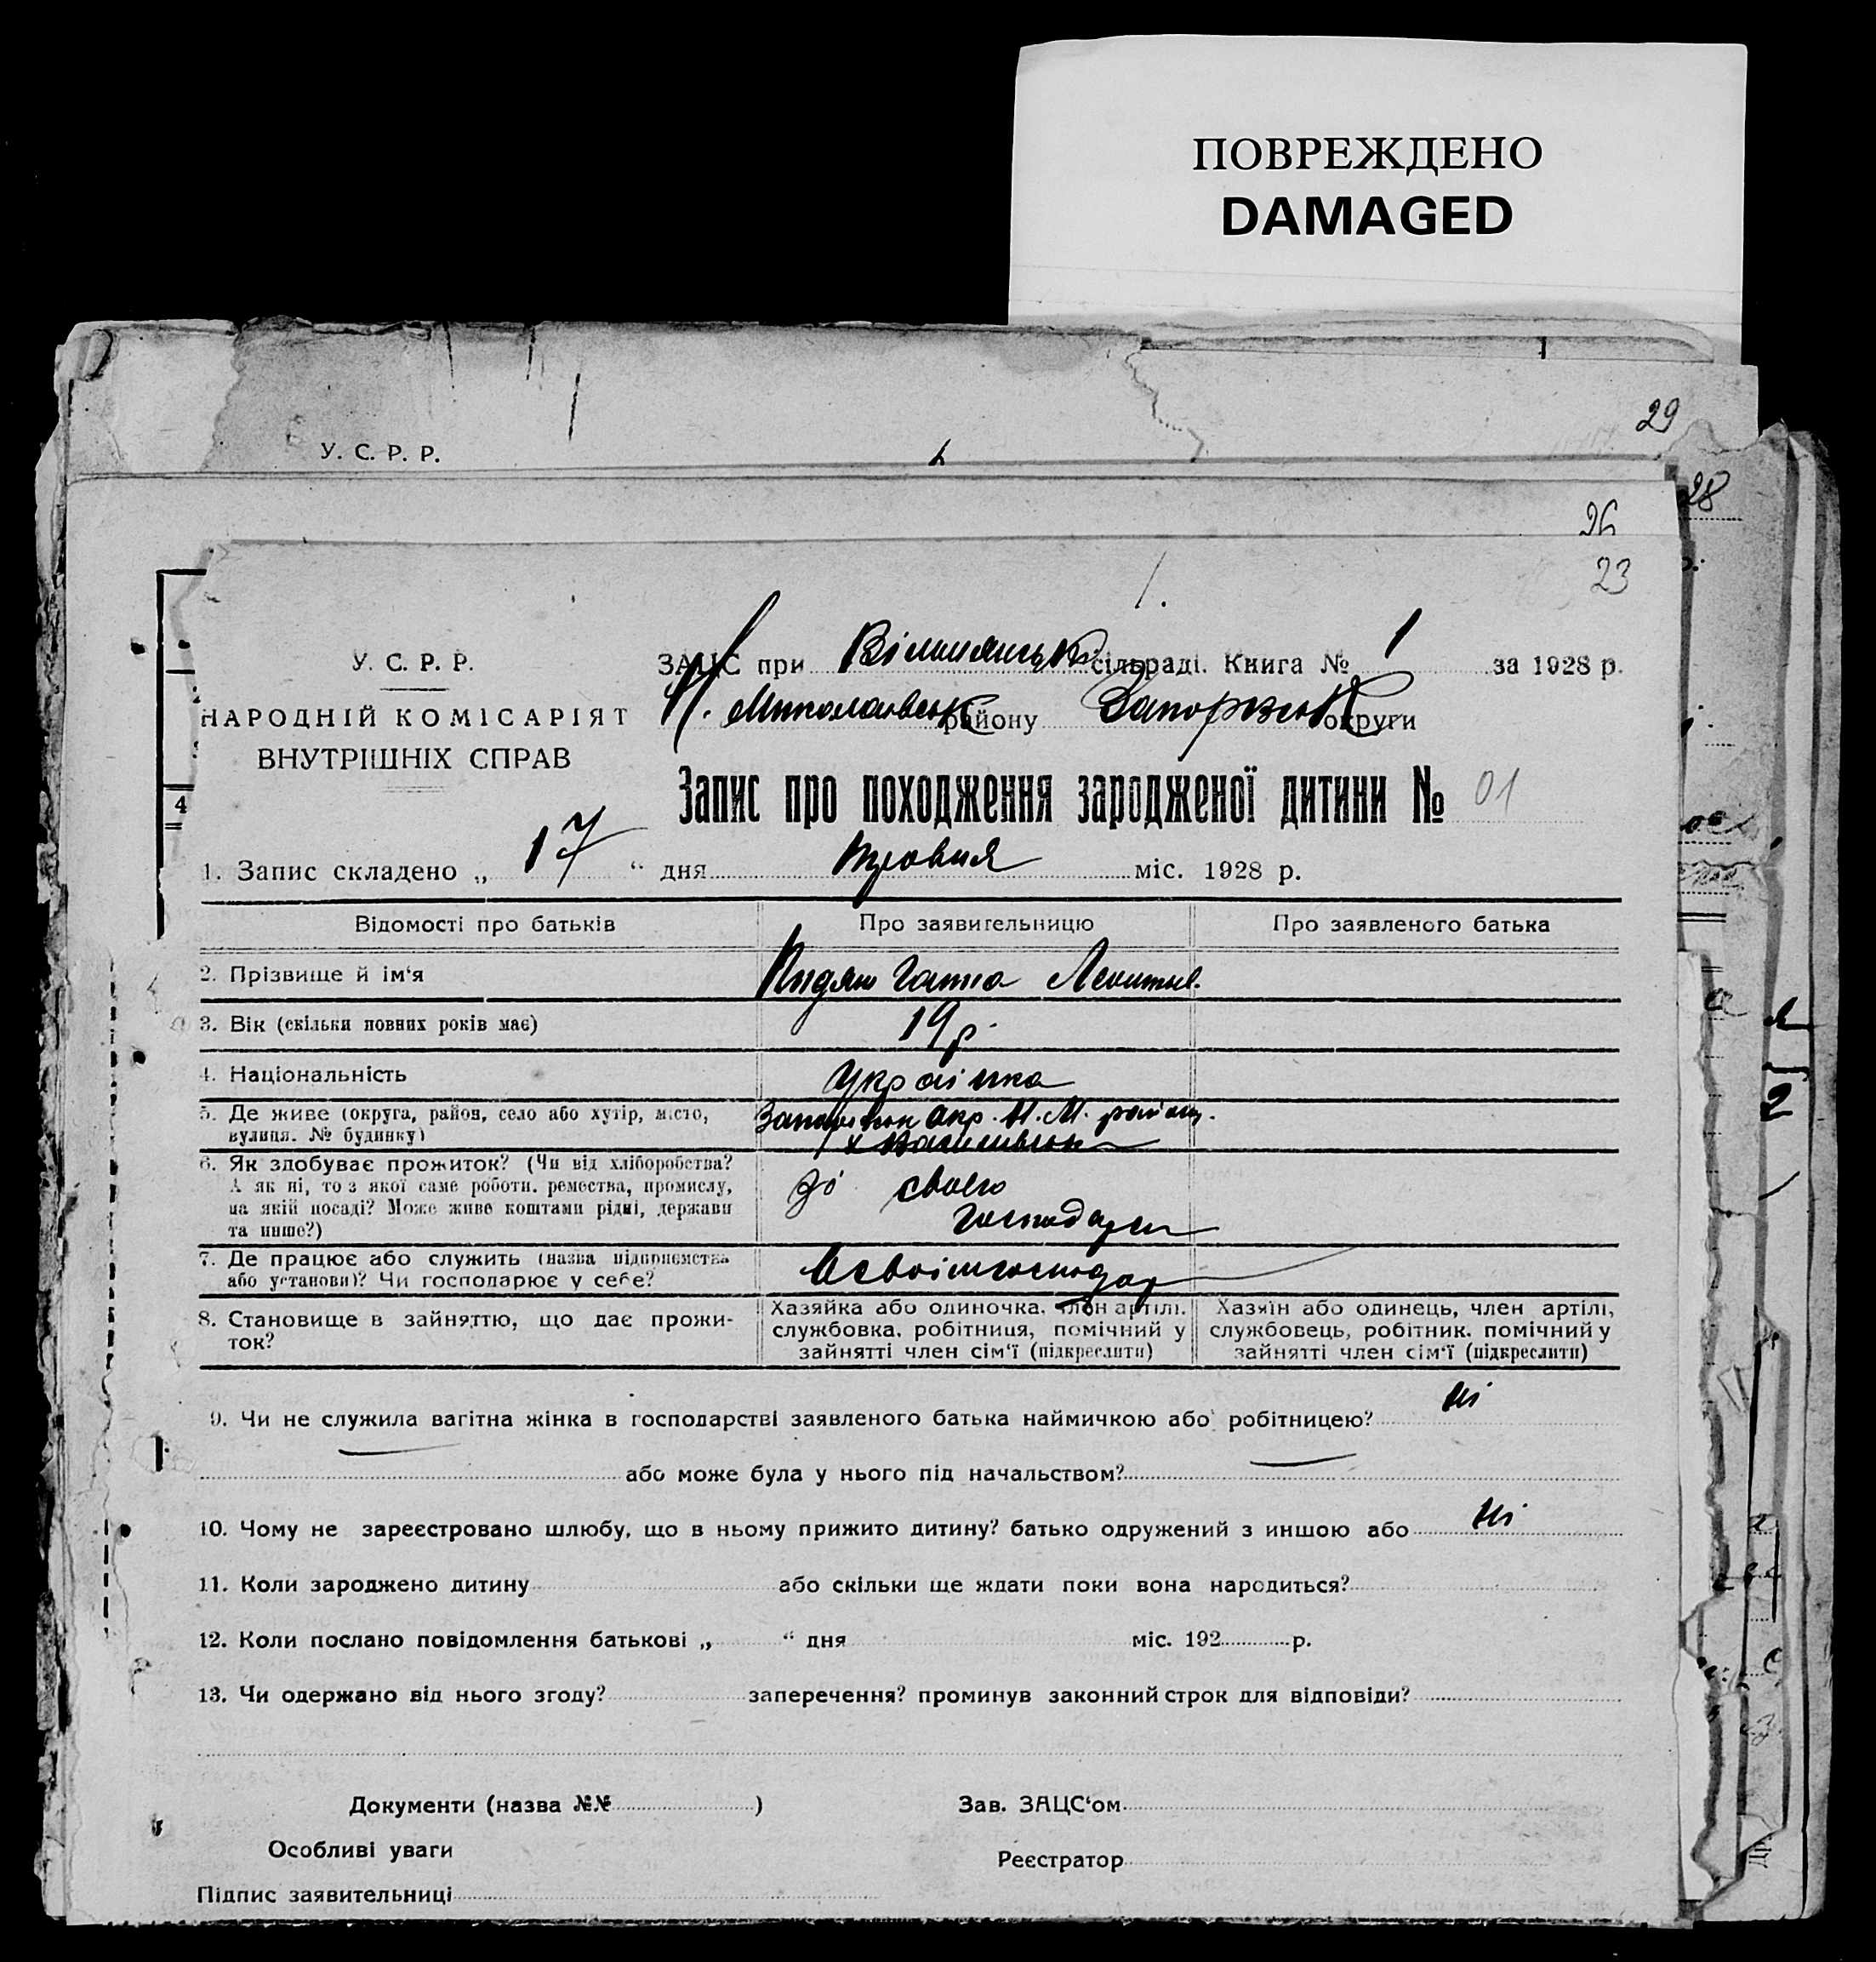 ПОВРЕЖДЕНО
DAMAGED
29
У. С. Р. Р.
28
26
23
1.
У. С. Р. Р.
НАРОДНІЙ КОМІСАРІЯТ
ВНУТРІШНІХ СПРАВ
ЗАЦС при сільраді. Книга № 1 за 1928 р.
Н. Миколаівськ району Запорізьк округи
Запис про походження зародженої дитини № 01
1. Запис складено „ 17 “ дня травня міс. 1928 р.
Відомості про батьків Про заявительницю Про заявленого батька
2. Прізвище й ім‘я Ганна
3. Вік (скільки повних років має) 19 р.
4. Національність Українка
5. Де живе (округа, район, село або хутір, місто, окр. Н. М. району.
вулиця. № будинку) х
6. Як здобуває прожиток? (Чи від хліборобства?
А як ні, то з якої саме роботи, ремества, промислу, Зі своего
на якій посаді? Може живе коштами рідні, держави господарсв
та инше?)
7. Де працює або служить (назва підприємства
або установи)? Чи господарює у себе? У своім господар
8. Становище в зайняттю, що дає прожи-
ток?
Хазяйка або одиночка, член артілі,
службовка, робітниця, помічний у
зайнятті член сім‘ї (підкреслити)
Хазяїн або одинець, член артілі,
службовець, робітник, помічний у
зайнятті член сім‘ї (підкреслити)
9. Чи не служила вагітна жінка в господарстві заявленого батька наймичкою або робітницею? ні
або може була у нього під начальством?
10. Чому не зареєстровано шлюбу, що в ньому прижито дитину? батько одружений з иншою або ні
11. Коли зароджено дитину або скільки ще ждати поки вона народиться?
12. Коли послано повідомлення батькові „ “ дня міс. 192 р.
13. Чи одержано від нього згоду? заперечення? проминув законний строк для відповіди?
Документи (назва №№ ) Зав. ЗАЦС‘ом
Особливі уваги
Реєстратор
Підпис заявительниці